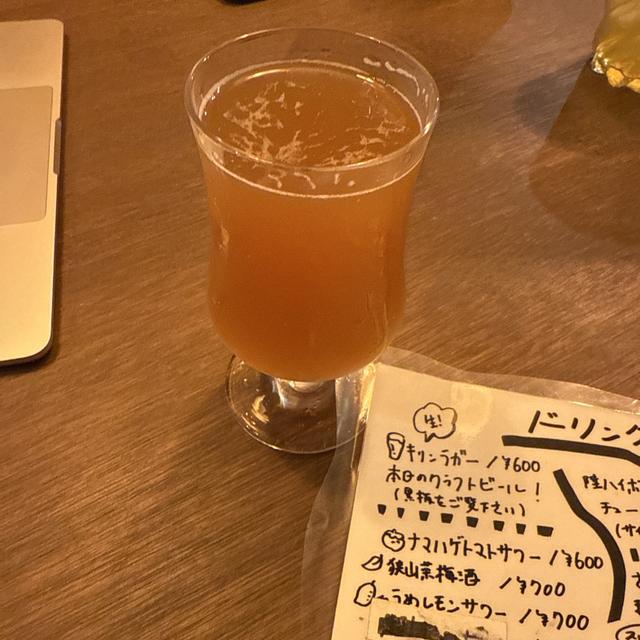 ドリンク
生!
キリンラガー /¥600
本日のクラフトビール!
(黒板をご覧下さい)
ナマハゲトマトサワー /¥600
狭山茶梅酒 /¥700
うめレモンサワー /¥700
陸ハイボ
チュー
(サ